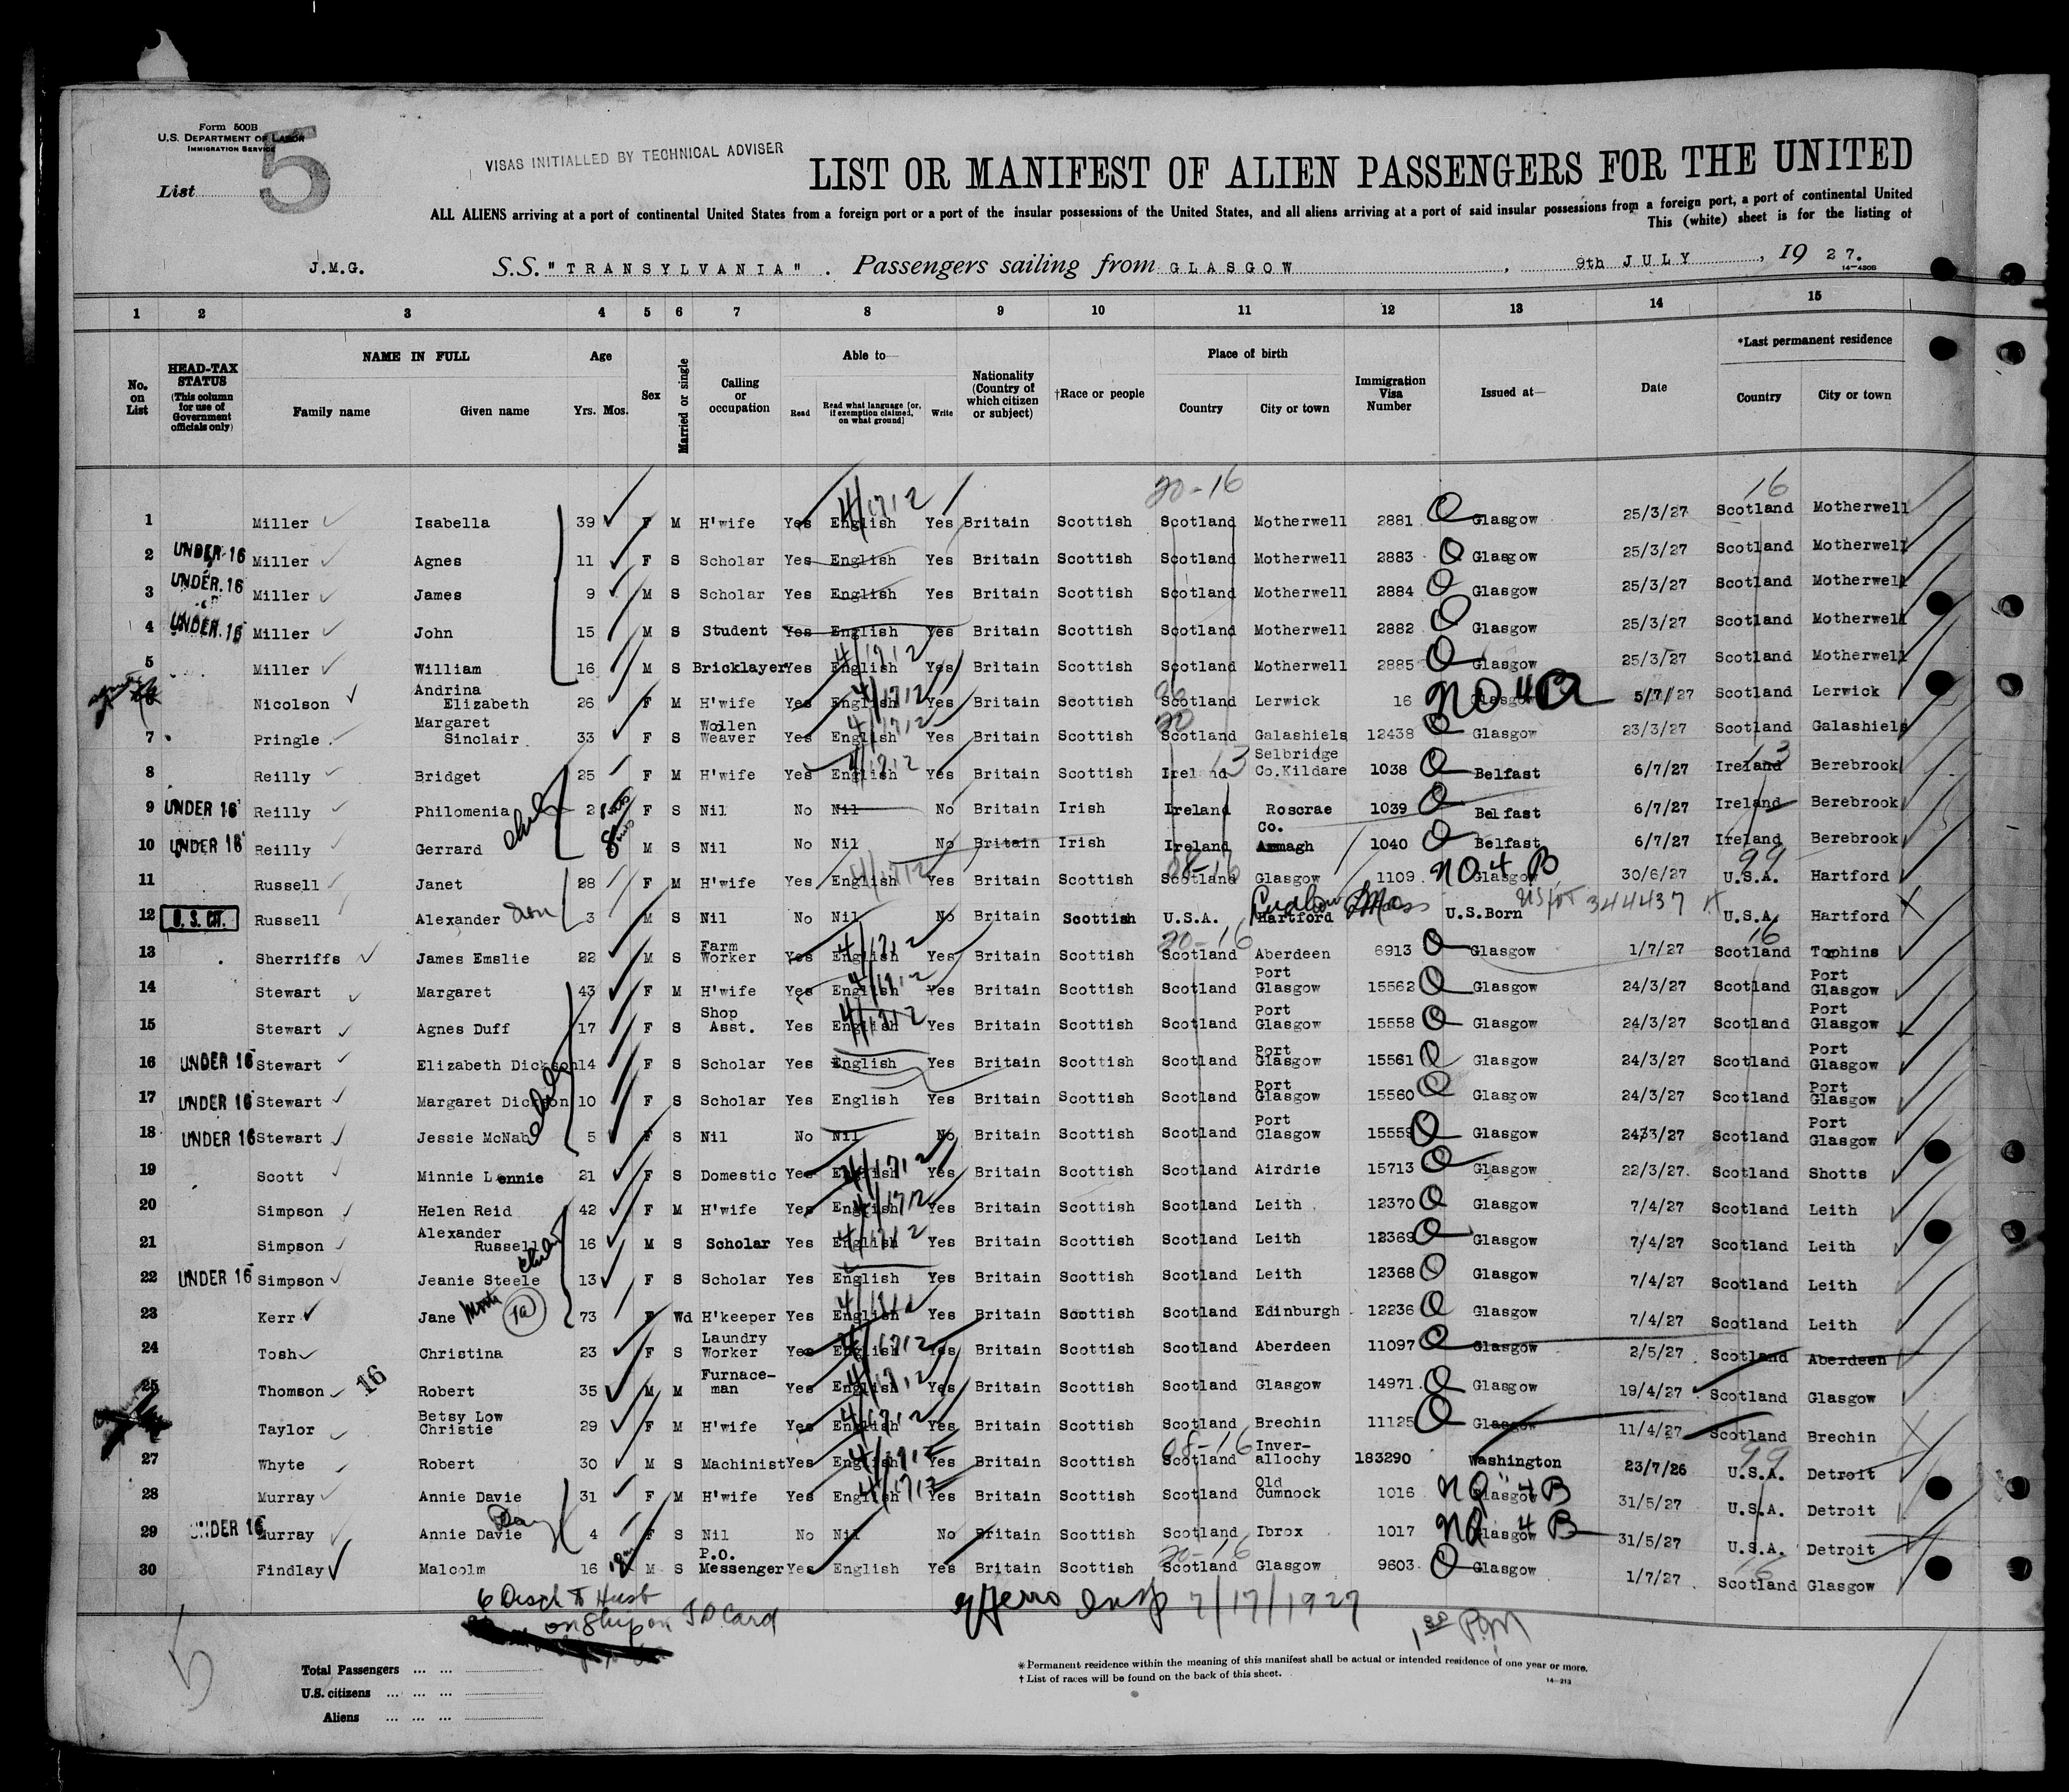 Form 500B
U.S. DEPARTMENT OF LABOR
IMMIGRATION SERVICE
List 5
VISAS INITIALLED BY TECHNICAL ADVISER
LIST OR MANIFEST OF ALIEN PASSENGERS FOR THE UNITED
ALL ALIENS arriving at a port of continental United States from a foreign port or a port of the insular possessions of the United States, and all aliens arriving at a port of said insular possessions from a foreign port, a port of continental United
This (white) sheet is for the listing of
J.M.G. S.S. "TRANSYLVANIA". Passengers sailing from GLASGOW, 9th JULY, 1927.
14-430B
1 2 3 4 5 6 7 8 9 10 11 12 13 14 15
No. on List
HEAD-TAX STATUS (This column for use of Government officials only)
NAME IN FULL
Family name Given name
Age
Yrs. Mos.
Sex
Married or single
Calling or occupation
Able to—
Read Read what language [or, if exemption claimed, on what ground] Write
Nationality (Country of which citizen or subject)
†Race or people
Place of birth
Country City or town
Immigration Visa Number
Issued at—
Date
*Last permanent residence
Country City or town
20-16 16
1 Miller Isabella 39 F M H'wife Yes English 4/1712 Yes Britain Scottish Scotland Motherwell 2881 Glasgow 25/3/27 Scotland Motherwell
2 UNDER 16 Miller Agnes 11 F S Scholar Yes English Yes Britain Scottish Scotland Motherwell 2883 Glasgow 25/3/27 Scotland Motherwell
3 UNDER 16 Miller James 9 M S Scholar Yes English Yes Britain Scottish Scotland Motherwell 2884 Glasgow 25/3/27 Scotland Motherwell
4 UNDER 16 Miller John 15 M S Student Yes English Yes Britain Scottish Scotland Motherwell 2882 Glasgow 25/3/27 Scotland Motherwell
5 Miller William 16 M S Bricklayer Yes English 4/1712 Yes Britain Scottish Scotland Motherwell 2885 Glasgow 25/3/27 Scotland Motherwell
Nicolson Andrina Elizabeth 26 F M H'wife Yes English 4/1712 Yes Britain Scottish Scotland Lerwick 16 Glasgow NO 4 5/7/27 Scotland Lerwick
7 Pringle Margaret Sinclair 33 F S Woollen Weaver Yes English 4/1712 Yes Britain Scottish 20 Scotland Galashiels 12438 Glasgow 23/3/27 Scotland Galashiels
8 Reilly Bridget 25 F M H'wife Yes English 4/1712 Yes Britain Scottish Ireland 13 Selbridge Co.Kildare 1038 Belfast 6/7/27 Ireland 13 Berebrook
9 UNDER 16 Reilly Philomenia 2 F S Nil No Nil No Britain Irish Ireland Roscrae 1039 Belfast 6/7/27 Ireland Berebrook
10 UNDER 16 Reilly Gerrard 8 mos M S Nil No Nil No Britain Irish Ireland Co. Armagh 1040 Belfast 6/7/27 Ireland Berebrook
08-16 99
11 Russell Janet 28 F M H'wife Yes English 4/1712 Yes Britain Scottish Scotland Glasgow 1109 Glasgow NO 4 B 30/6/27 U.S.A. Hartford
12 U.S. CIT. Russell Alexander Son 3 M S Nil No Nil No Britain Scottish U.S.A. Hartford Ludlow Mass U.S.Born 344437 U.S.A. Hartford
20-16 16
13 Sherriffs James Emslie 22 M S Farm Worker Yes English 4/1712 Yes Britain Scottish Scotland Aberdeen 6913 Glasgow 1/7/27 Scotland Tophins
14 Stewart Margaret 43 F M H'wife Yes English 4/1712 Yes Britain Scottish Scotland Port Glasgow 15562 Glasgow 24/3/27 Scotland Port Glasgow
15 Stewart Agnes Duff 17 F S Shop Asst. Yes English 4/1712 Yes Britain Scottish Scotland Port Glasgow 15558 Glasgow 24/3/27 Scotland Port Glasgow
16 UNDER 16 Stewart Elizabeth Dickson 14 F S Scholar Yes English Yes Britain Scottish Scotland Port Glasgow 15561 Glasgow 24/3/27 Scotland Port Glasgow
17 UNDER 16 Stewart Margaret Dickson 10 F S Scholar Yes English Yes Britain Scottish Scotland Port Glasgow 15560 Glasgow 24/3/27 Scotland Port Glasgow
18 UNDER 16 Stewart Jessie McNab 5 F S Nil No Nil No Britain Scottish Scotland Port Glasgow 15559 Glasgow 24/3/27 Scotland Port Glasgow
19 Scott Minnie Lennie 21 F S Domestic Yes English 4/1712 Yes Britain Scottish Scotland Airdrie 15713 Glasgow 22/3/27. Scotland Shotts
20 Simpson Helen Reid 42 F M H'wife Yes English 4/1712 Yes Britain Scottish Scotland Leith 12370 Glasgow 7/4/27 Scotland Leith
21 Simpson Alexander Russell 16 M S Scholar Yes English 4/1712 Yes Britain Scottish Scotland Leith 12369 Glasgow 7/4/27 Scotland Leith
22 UNDER 16 Simpson Jeanie Steele 13 F S Scholar Yes English Yes Britain Scottish Scotland Leith 12368 Glasgow 7/4/27 Scotland Leith
23 Kerr Jane 73 F Wd H'keeper Yes English 4/1712 Yes Britain Scottish Scotland Edinburgh 12236 Glasgow 7/4/27 Scotland Leith
24 Tosh Christina 23 F S Laundry Worker Yes English 4/1712 Yes Britain Scottish Scotland Aberdeen 11097 Glasgow 2/5/27 Scotland Aberdeen
25 Thomson 16 Robert 35 M M Furnace-man Yes English 4/1712 Yes Britain Scottish Scotland Glasgow 14971 Glasgow 19/4/27 Scotland Glasgow
Taylor Betsy Low Christie 29 F M H'wife Yes English 4/1712 Yes Britain Scottish Scotland Brechin 11125 Glasgow 11/4/27 Scotland Brechin
08-16 99
27 Whyte Robert 30 M S Machinist Yes English 4/1712 Yes Britain Scottish Scotland Inver-allochy 183290 Washington 23/7/26 U.S.A. Detroit
28 Murray Annie Davie 31 F M H'wife Yes English 4/1712 Yes Britain Scottish Scotland Old Cumnock 1016 Glasgow NO 4 B 31/5/27 U.S.A. Detroit
29 UNDER 16 Murray Annie Davie 4 F S Nil No Nil No Britain Scottish Scotland Ibrox 1017 Glasgow NO 4 B 31/5/27 U.S.A. Detroit
20-16 16
30 Findlay Malcolm 16 M S P.O. Messenger Yes English Yes Britain Scottish Scotland Glasgow 9603 Glasgow 1/7/27 Scotland Glasgow
6 Disch to Husb
on Ship on I D Card
Insp 7/17/1927
5
Total Passengers ... ...
U.S. citizens ... ... ...
Aliens ... ... ...
*Permanent residence within the meaning of this manifest shall be actual or intended residence of one year or more.
† List of races will be found on the back of this sheet.
14-213